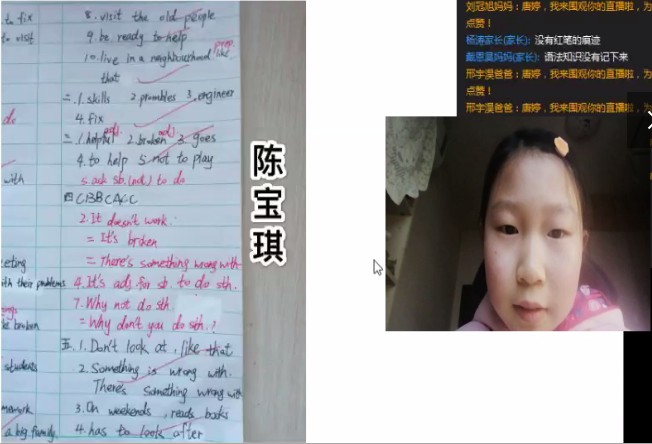 to fix
to visit
do
with
eeting
with their problems
ongs
be broken
students
mework
a big family.
8. visit the old people
9. be ready to help
prep.
10. live in a neighbourhood like
that
二. 1. skills 2. prombles 3. engineer
4. fix
adj. adj
三. 1. helpful 2. broken 3. goes
4. to help 5. not to play
5. ask sb. (not) to do
四 CBBCACC
2. It doesn't work.
= It's broken
= There's something wrong with
4. It's adj for sb. to do sth.
7. Why not do sth.
= Why don't you do sth.?
五. 1. Don't look at, like that
2. Something is wrong with.
There's something wrong with
3. On weekends, reads books
4. has to look after
陈
宝
琪
刘冠旭妈妈：唐婷，我来围观你的直播啦，为
点赞！
杨涛家长(家长): 没有红笔的痕迹
家长(家长): 语法知识没有记下来
邢宇漫爸爸：唐婷，我来围观你的直播啦，为
点赞！
邢宇漫爸爸：唐婷，我来围观你的直播啦，为